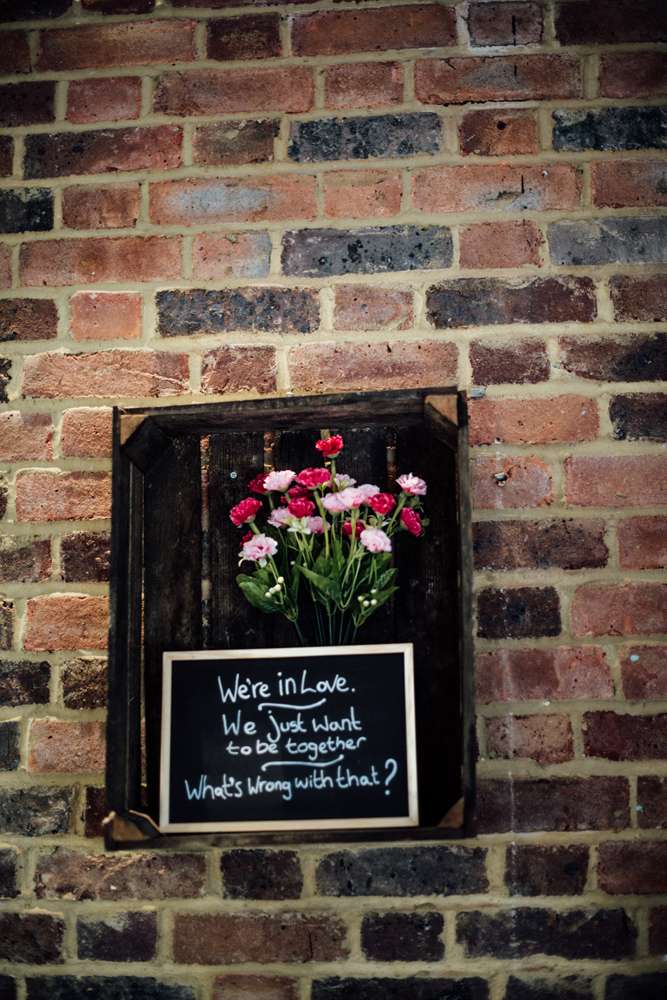 We're in Love.
We just want
to be together
What's wrong with that?